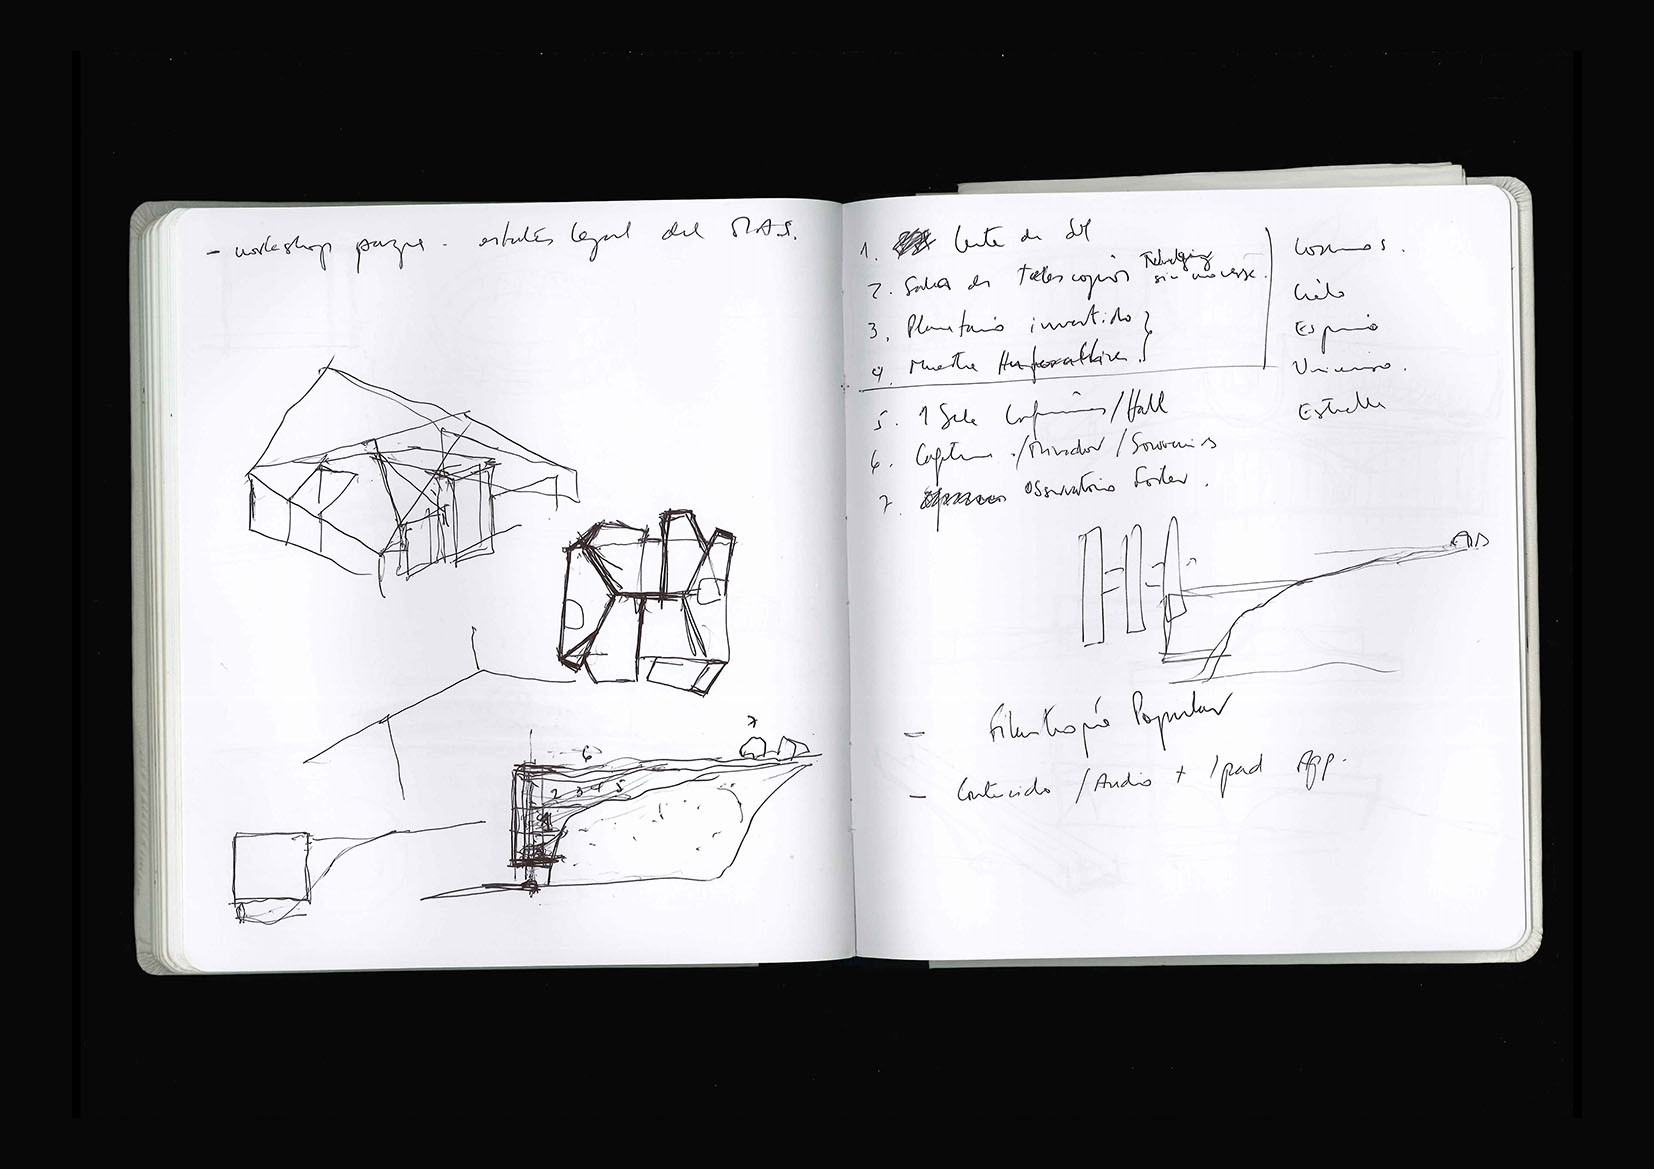 - workshop parque - estatus legal del M.A.S.
7
6
2 3 4 5
1
1. Lente de sol
2. Salas de telescopios Tecnología sin moverse.
3. Planetario invertido
4. Muestra
5. 1 Sala Conferencias/Hall
6. Cafeteria /Mirador/Souvenirs
7. Observatorio Foster.
Cosmos.
Cielo
Espacio
Universo.
Estrella
- Filantropía Popular
- Contenido /Audio + Ipad App.